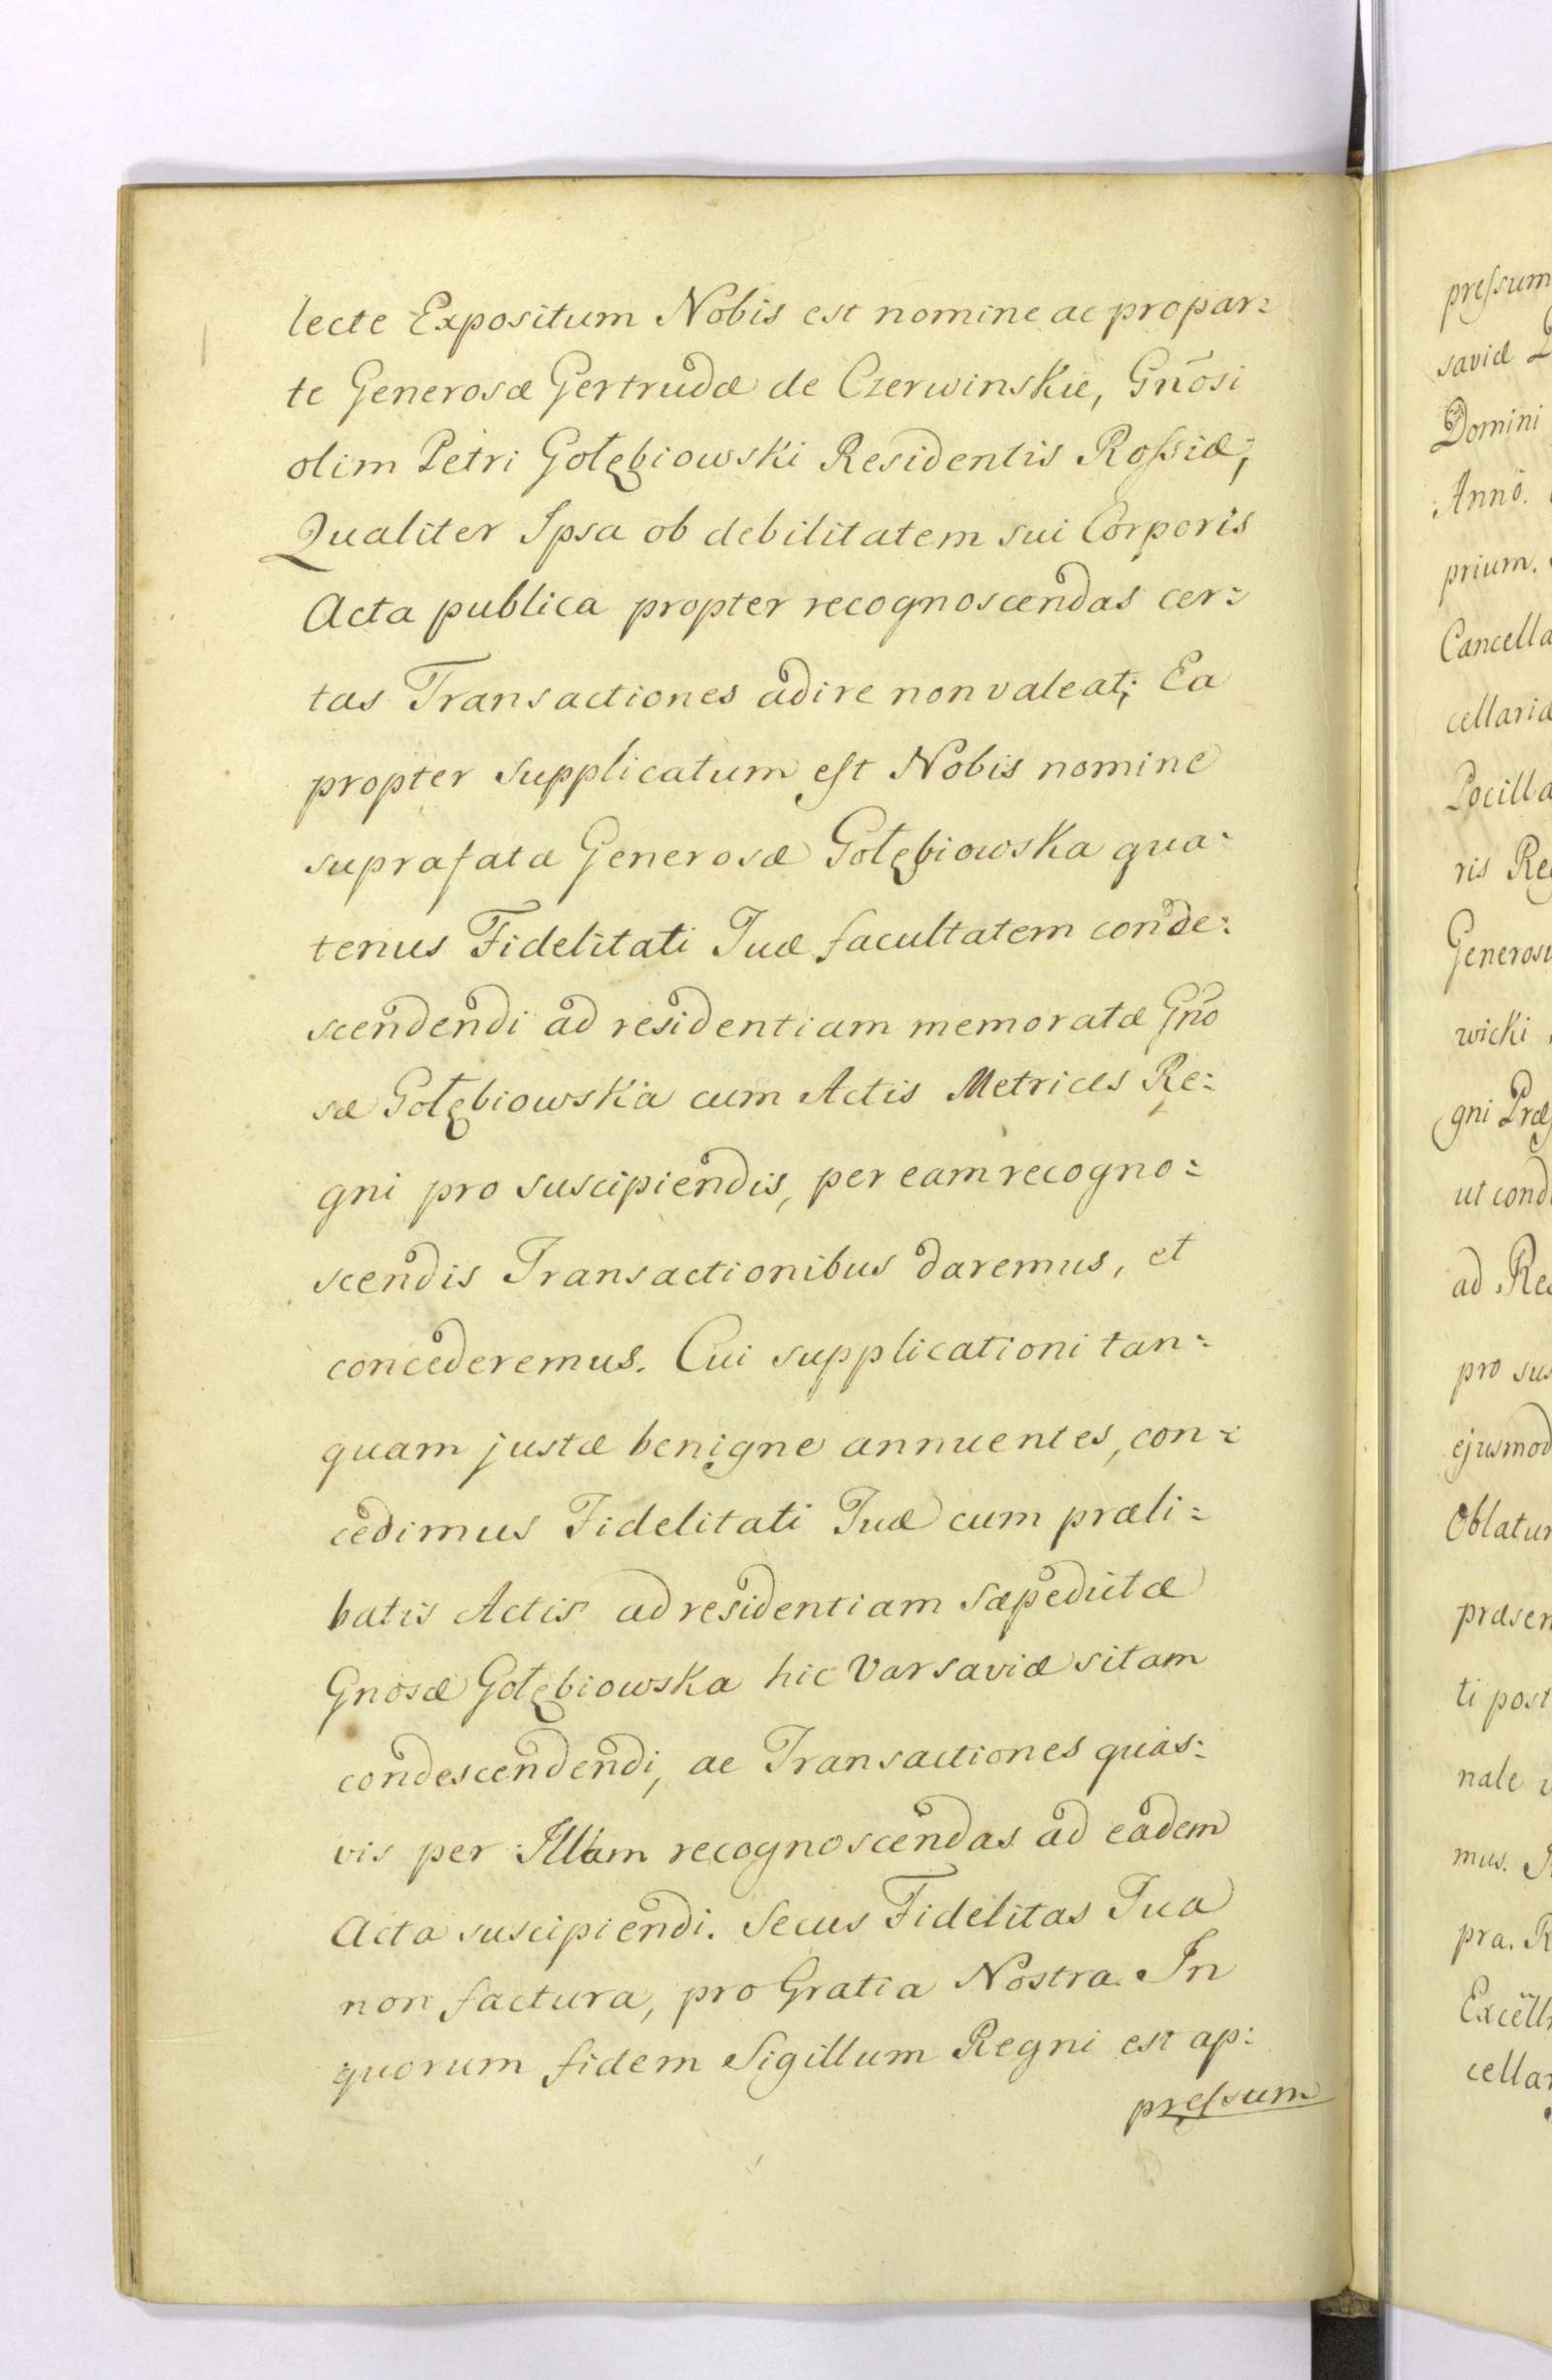 lecte Expositum Nobis est nomine ac propar:
te Generosæ Gertrudæ de Czerwinskie, Gnõsi
olim Petri Gołębiowski Residentis Roſsiæ,
Qualiter Ipsa ob debilitatem sui Corporis
Acta publica propter recognoscendas cer:
tas Transactiones adire non valeat; Ea
propter supplicatum eſt Nobis nomine
suprafatæ Generosæ Gołębiowska qua:
tenus Fidelitati Tuæ facultatem conde:
scendendi ad residentiam memoratæ Gñō
sæ Gołębiowska cum Actis Metrices Re:
gni pro suscipiendis, per eam recogno:
scendis Transactionibus daremus, et
concederemus. Cui supplicationi tan:
quam justæ benigne annuentes, con:
cedimus Fidelitati Tuæ cum præli:
batis Actis ad residentiam sæpedictæ
Gnosæ Gołębiowska hic Varsaviæ sitam
condescendendi, ac Transactiones quas:
vis per Illam recognoscendas ad eadem
Acta suscipiendi. Secus Fidelitas Tua
non factura, pro Gratia Nostra. In
quorum fidem Sigillum Regni est ap:
preſsum
preſsum
saviæ
Domini
Annō.
prium.
Cancella
cellariæ
Pocilla
ris Reg
Generosu
wicki
gni Præ
ut cond
ad Res
pro sus
ejusmod
Oblatur
præsen
ti post
nale
mus.
pra. R
Excell
cellar